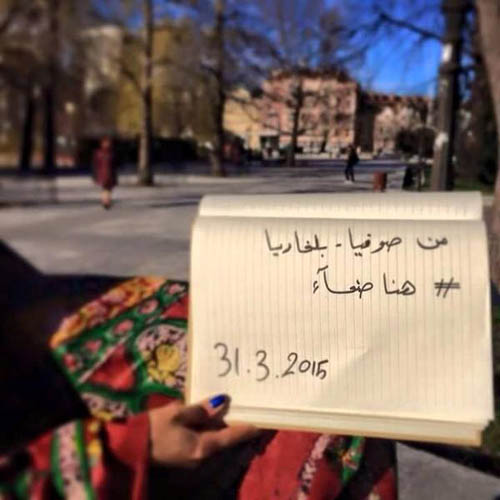 من صوفيا - بلغاريا
# هنا صنعآء
31.3.2015